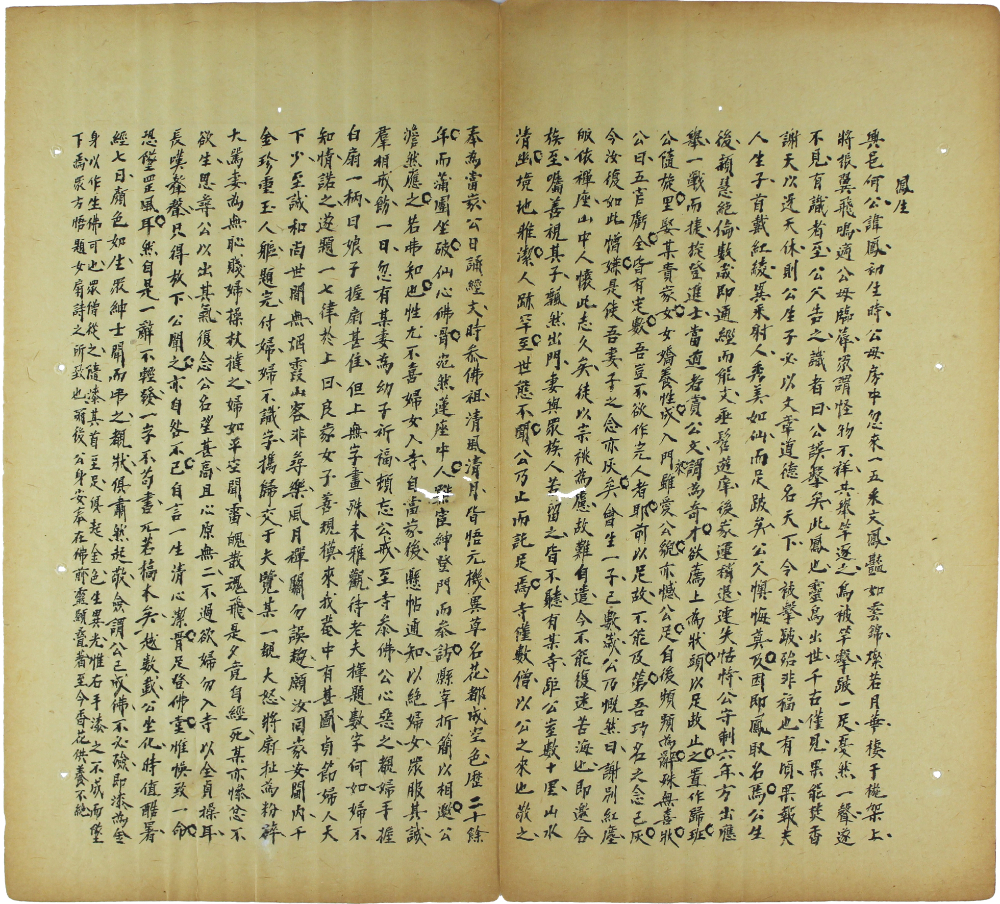 鳳生
興邑何公諱鳳初生時公母房中忽來一五采文鳳豔如雲錦燦若月華棲于椸架上
將振翼飛鳴適公母臨蓐眾謂怪物不祥其舉竿逐之為被竿擊跛一足戛然一聲遂
不見有識者至公父告之識者曰公誤擊矣此鳳也靈鳥出世千古僅見果能焚香
謝天以迓天休則公生子必以文章道德名天下今被擊跛殆非福也有頃果報夫
人生子首戴紅綾異采射人秀美如仙而足跛矣公父懊悔莫及因即鳳取名焉公生
後穎慧絕倫數歲即通經而能文垂髫遊庠後家運稍退連失怙恃公守制六年方出應
舉一戰而捷掟登進士當道者賣公文謂為奇才欲薦上為狀頭以足故止之置作歸班
公隨旋里娶某貴家女女嬌養性成入門雖愛公貌亦憾公足自後頻頻為辭殊無喜狀
公曰五官虧全皆有定數吾豈不欲作完人者耶前以足故不能及第吾功名之念已灰
今汝復如此憎嫌是使吾妻子之念亦灰矣會生一子已數歲公乃慨然曰謝別紅塵
皈依禪座山中人懷此志久矣徒以宗祧為應故難自遣今不能復迷苦海也即邀合
族至囑善視其子飄然出門妻與眾族人苦留之皆不聽有某寺距公室數十里山水
清幽境地雅潔人跡罕至世態不聞公乃止而託足焉寺僅數僧以公之來也敬之
奉為當家公日誦經文時參佛祖清風清月皆悟元機異草名花都成空色歷二十餘
年而蒲團坐破仙心佛骨宛然蓮座中人雖宦紳登門而參訪縣宰折簡以相邀公
澹然應之若弗知也性尤不喜婦女入寺自當家後懸帖通知以絕婦女眾服其誠
羣相戒飭一日忽有某妻為幼子祈福頓忘公戒至寺參佛公心惡之覩婦手握
白扇一柄曰娘子握扇甚佳但上無字畫殊未雅觀待老夫揮題數字何如婦不
知情諾之遂題一七律於上曰良家女子善規模來我菴中有甚圖貞節婦人天
下少至誠和尚世間無烟霞山客非尋樂風月禪關勿誤趨願汝囘家安閫內千
金珍重玉人軀題完付婦婦不識字攜歸交于夫覽某一覩大怒將扇扯為粉碎
大罵妻為無恥賤婦操杖撻之婦如平空聞雷魄散魂飛是夕竟自經死某亦慘忿不
欲生思辱公以出其氣復念公名望甚高且心原無二不過欲婦勿入寺以全貞操耳
長嘆聲聲只得放下公聞之亦自咎不已自言一生清心潔骨足登佛堂惟悞致一命
恐墮罡風耳然自是一辭不輕發一字不苟畫兀若槁木矣越數載公坐化時值酷暑
經七日顏色如生眾紳士聞而弔之覩狀俱肅然起敬僉謂公已成佛不必殮即漆為金
身以作生佛可也眾僧從之隨漆其首至足俱起金色生異光惟右手漆之不成而墮
下為眾方悟題女扇詩之所致也嗣後公身安奉在佛廚靈顯叠著至今香花供養不絕